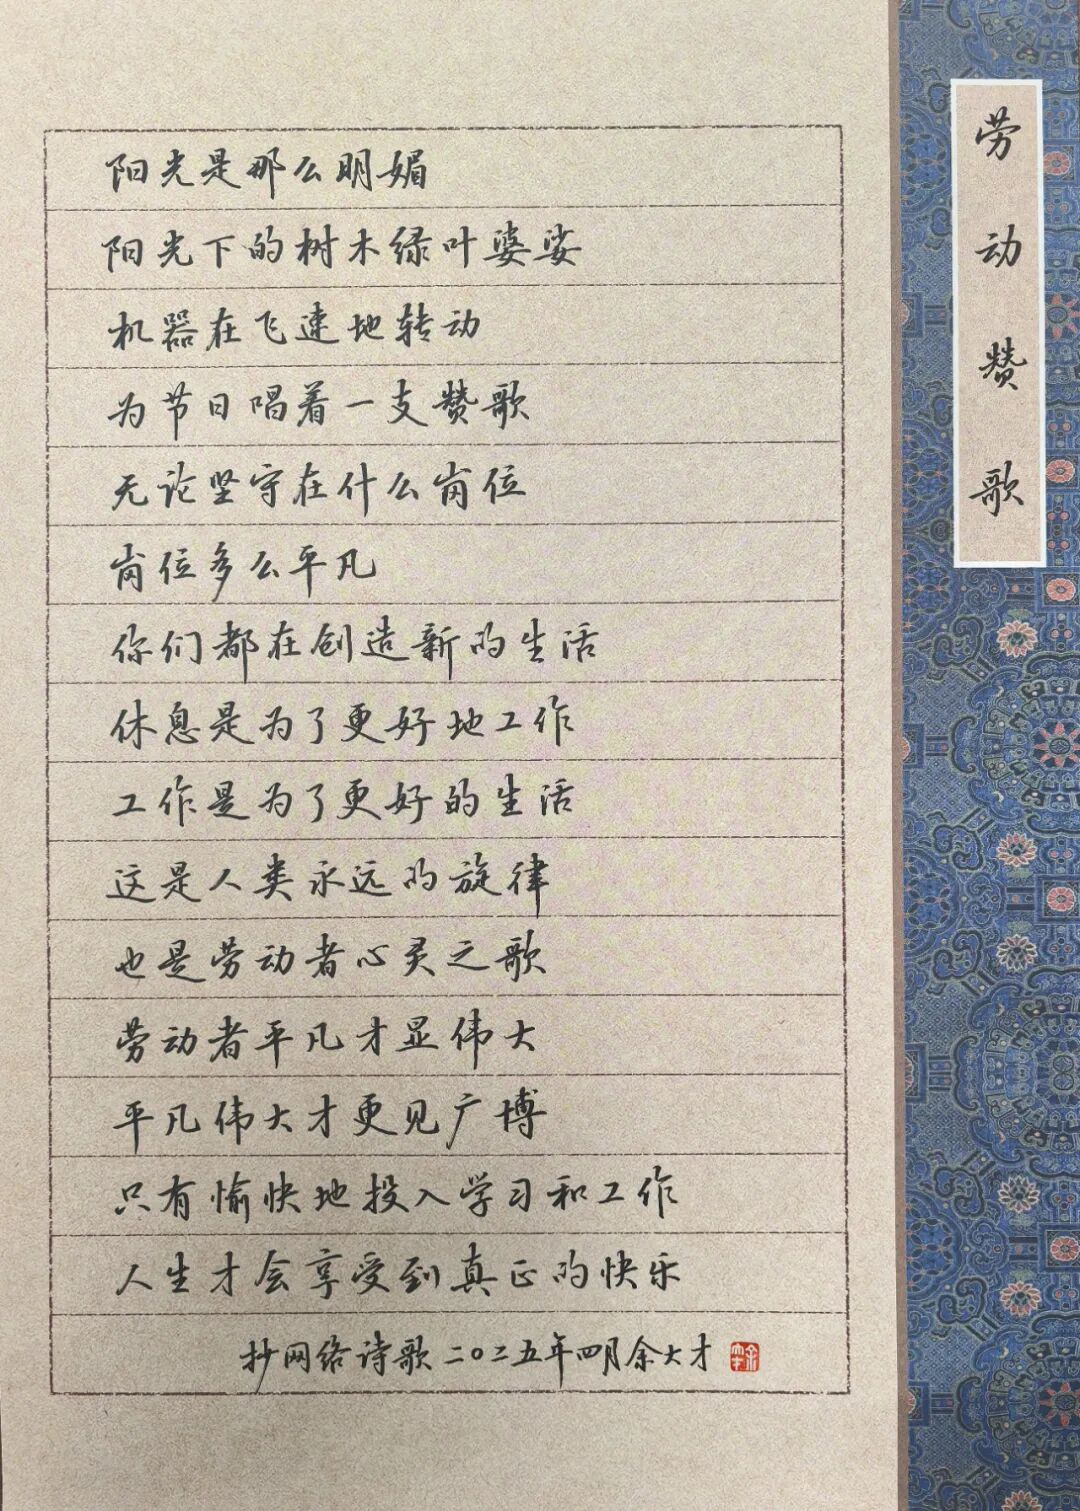 劳动赞歌
阳光是那么明媚
阳光下的树木绿叶婆娑
机器在飞速地转动
为节日唱着一支赞歌
无论坚守在什么岗位
岗位多么平凡
你们都在创造新的生活
休息是为了更好地工作
工作是为了更好的生活
这是人类永远的旋律
也是劳动者心灵之歌
劳动者平凡才显伟大
平凡伟大才更见广博
只有愉快地投入学习和工作
人生才会享受到真正的快乐
抄网络诗歌二〇二五年四月余大才